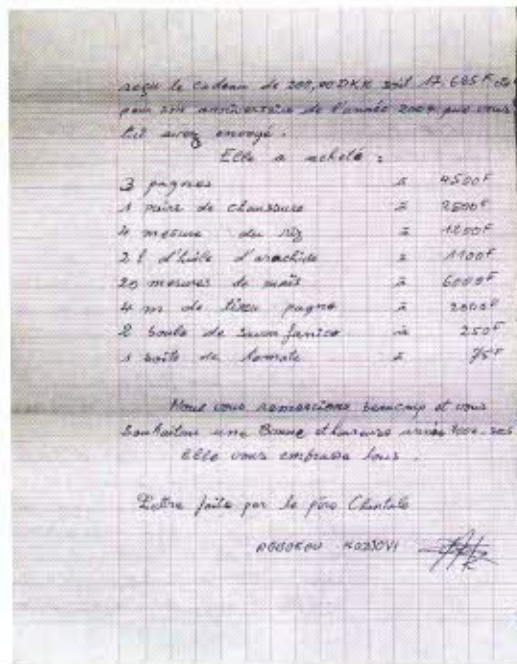 reçu le cadeau de 200,00 DKK soit 17.685 F
pour son anniversaire de l'année 2004 que vous
lui avez envoyé.
Elle a acheté :
3 pagnes à 4500F
1 paire de chaussure à 2500F
4 mesure du riz à 1200F
2 l d'huile d'arachide à 1100F
20 mesures de maïs à 6000F
4 m de tissu pagne à 2000F
2 boule de savon fanico à 250F
1 boîte de tomate à 75F
Nous vous remercions beaucoup et vous
souhaitons une Bonne et heureuse année
Elle vous embrasse tous.
Lettre faite par le père Chantale
AGBOKOU KODJOVI